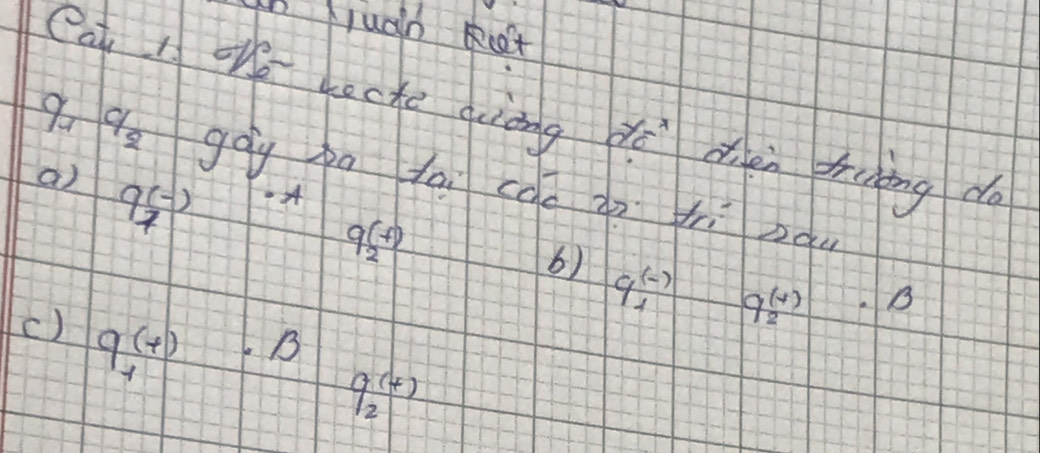 Xuân Kiệt
Câu 1. Vẽ vectơ cường độ điện trường do
q₁ q₂ gây ra tại các vị trí sau
a) q₁(-) . A q₂(+) b) q₁(-) q₂(+) . B
c) q₁(+) . B q₂(+)